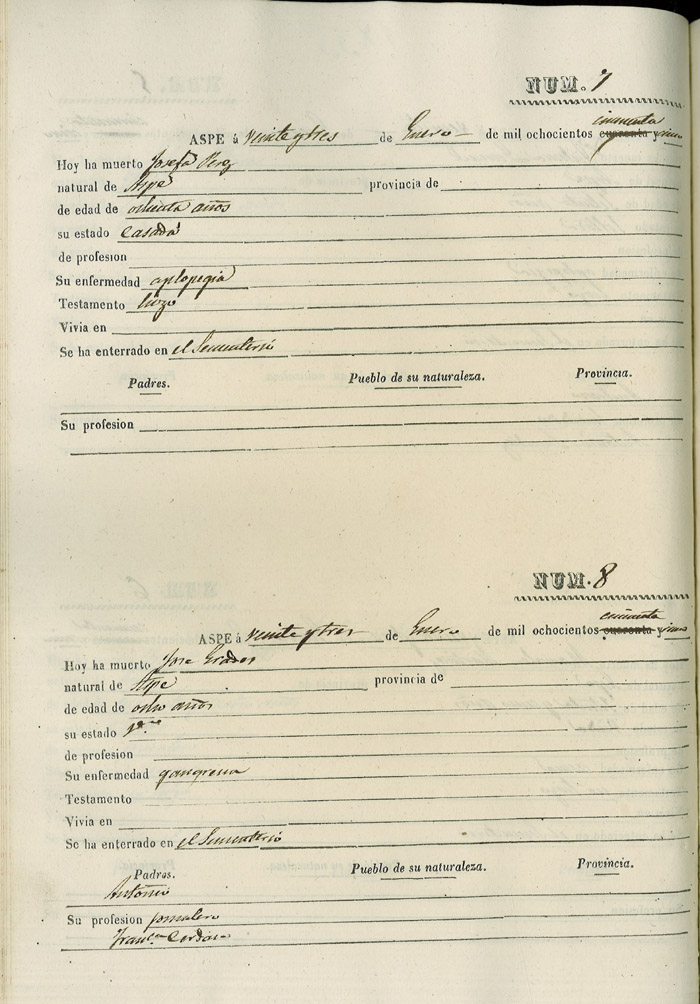 NUM. 7
cincuenta
ASPE á veinte y tres de Enero de mil ochocientos cuarenta y cinco
Hoy ha muerto Josefa Perez
natural de Aspe provincia de
de edad de ochenta años
su estado Casada
de profesion
Su enfermedad aplopegia
Testamento hizo
Vivia en
Se ha enterrado en el Sementerio
Padres. Pueblo de su naturaleza. Provincia.
Su profesion
NUM. 8
cincuenta
ASPE á veinte y tres de Enero de mil ochocientos cuarenta y cinco
Hoy ha muerto Jose
natural de Aspe provincia de
de edad de ocho años
su estado
de profesion
Su enfermedad gangrena
Testamento
Vivia en
Se ha enterrado en el Sementerio
Padres. Pueblo de su naturaleza. Provincia.
Antonio
Su profesion jornalero